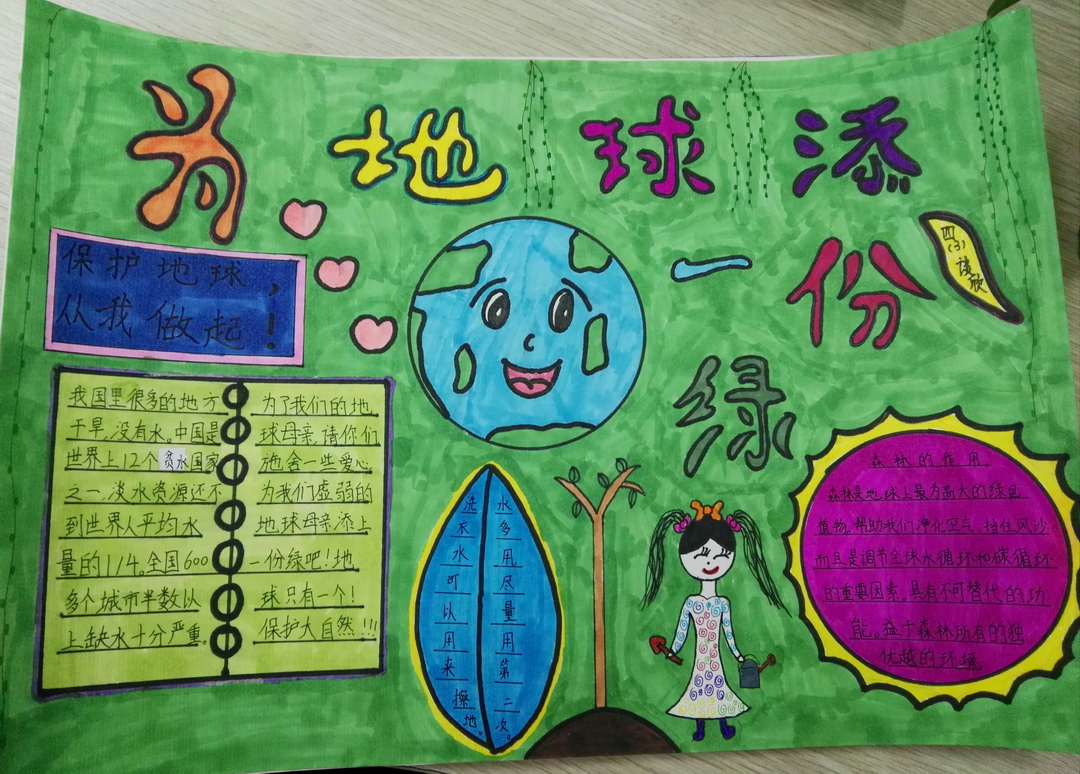 为地球添
一份
绿
四(3)
保护地球，
从我做起！
我国里很多的地方
干旱,没有水。中国是
世界上12个贫水国家
之一,淡水资源还不
到世界人平均水
量的1/4。全国600
多个城市半数以
上缺水十分严重。
为了我们的地
球母亲,请你们
施舍一些爱心
为我们虚弱的
地球母亲,添上
一份绿吧！地
球只有一个！
保护大自然!!!
洗衣水可以用来擦地。
水多用尽量用第二次。
森林的作用。
森林是地球上最为高大的绿色
植物。帮助我们净化空气，挡住风沙
而且是调节全球水循环和碳循环
的重要因素。具有不可替代的功
能。益于森林所有的独
优越的环境